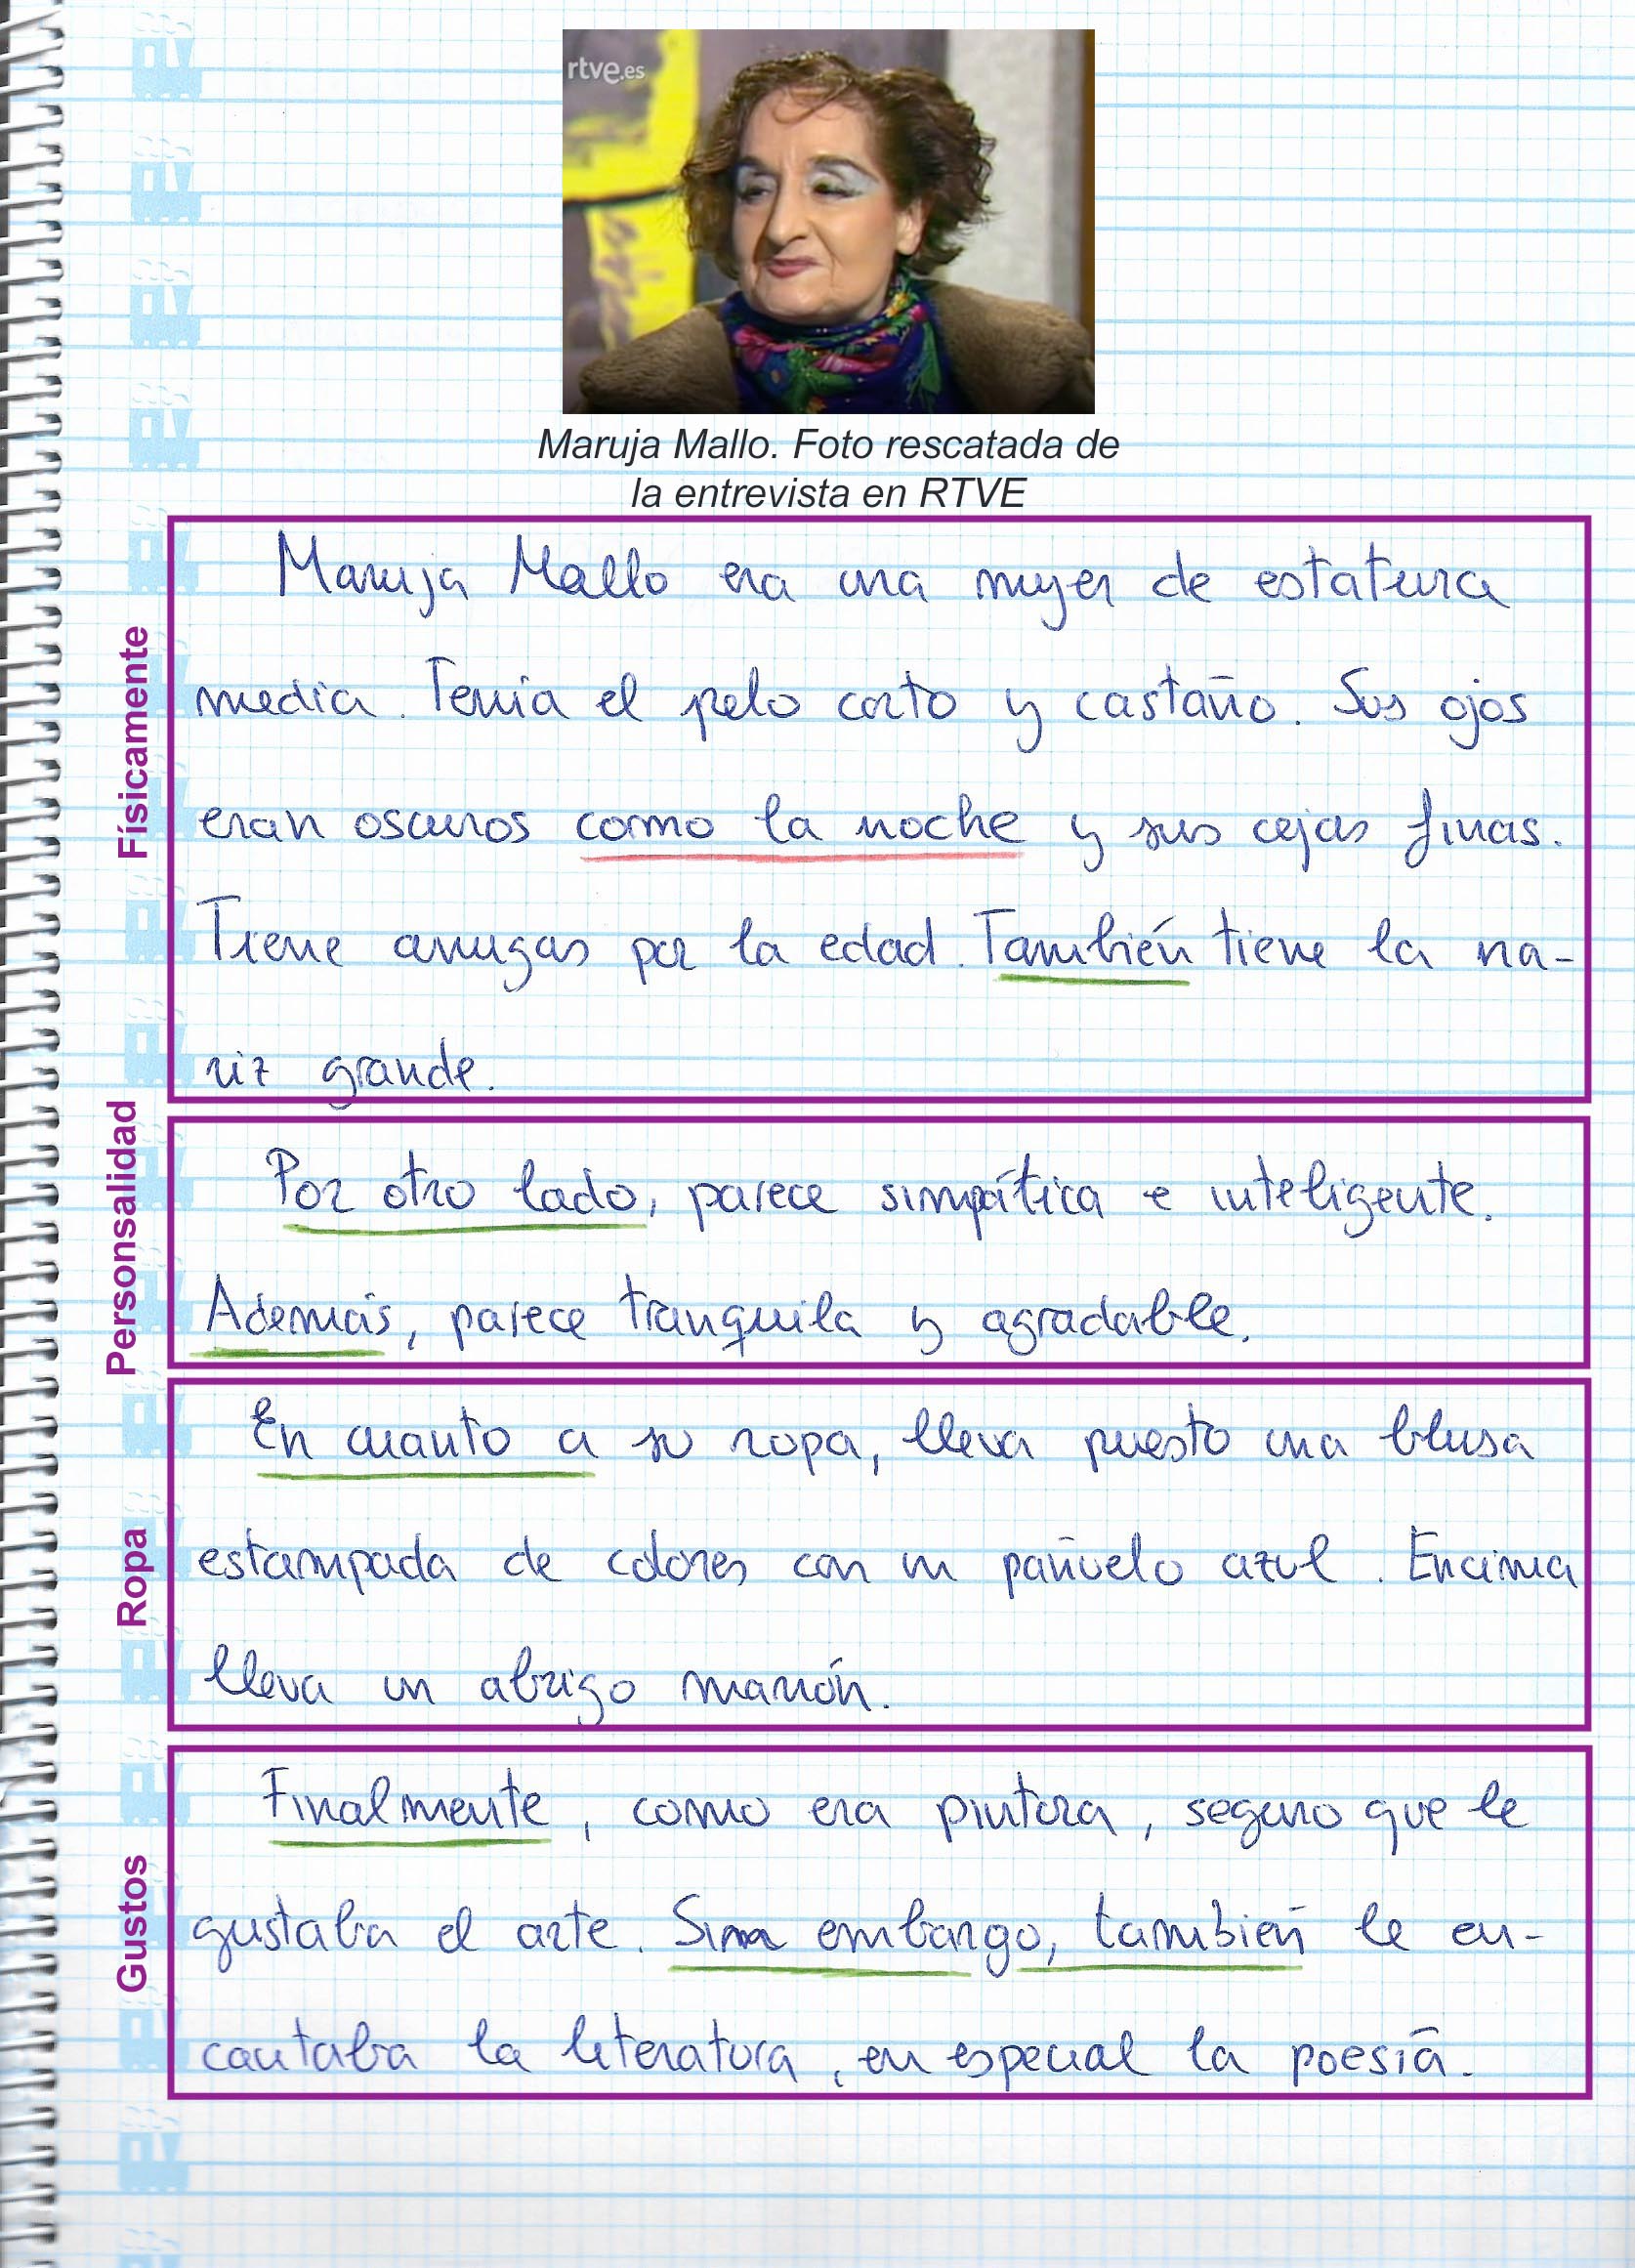 rtve.es
Maruja Mallo. Foto rescatada de
la entrevista en RTVE
Físicamente
Maruja Mallo era una mujer de estatura
media. Tenía el pelo corto y castaño. Sus ojos
eran oscuros como la noche y sus cejas finas.
Tiene arrugas por la edad. También tiene la na-
riz grande.
Personsalidad
Por otro lado, parece simpática e inteligente.
Además, parece tranquila y agradable.
Ropa
En cuanto a su ropa, lleva puesto una blusa
estampada de colores con un pañuelo azul. Encima
lleva un abrigo marrón.
Gustos
Finalmente, como era pintora, seguro que le
gustaba el arte. Sin embargo, también le en-
cantaba la literatura, en especial la poesía.